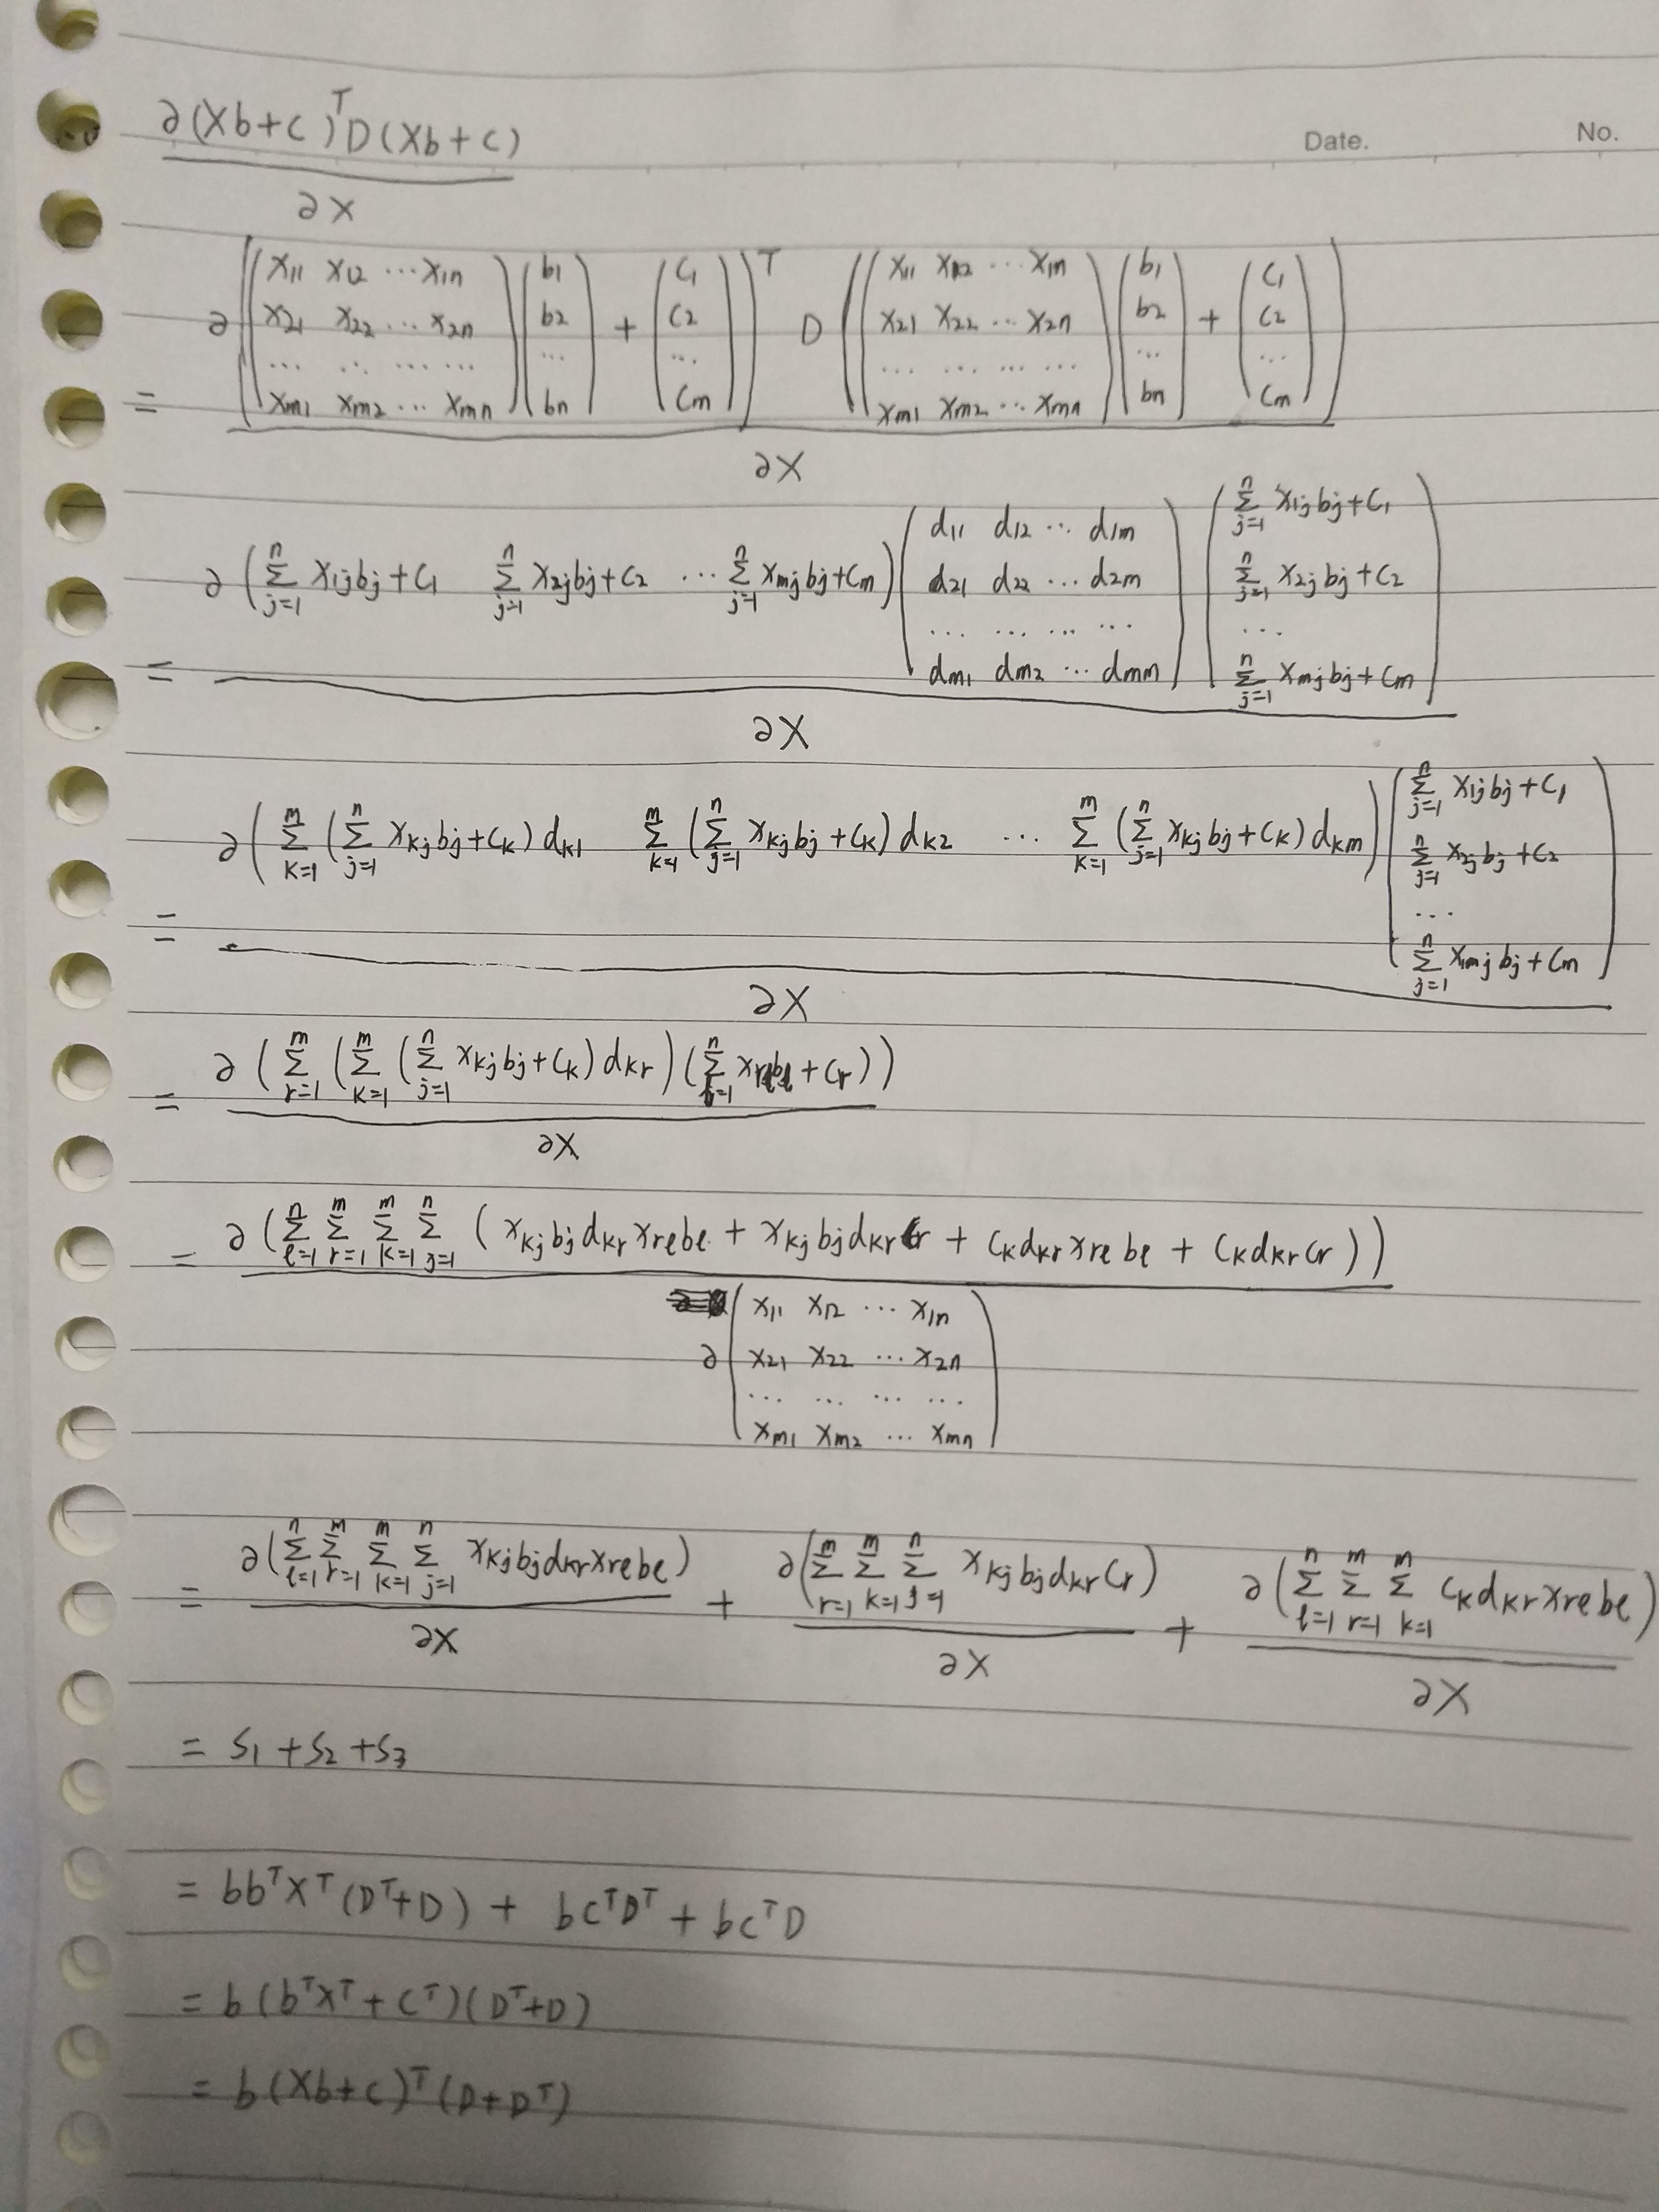 Date. No.
∂(Xb+C)ᵀD(Xb+C)
∂X
= ∂((x₁₁ x₁₂ ⋯ x₁ₙ; x₂₁ x₂₂ ⋯ x₂ₙ; ⋯ ⋯ ⋯ ⋯; xₘ₁ xₘ₂ ⋯ xₘₙ)(b₁; b₂; ⋯; bₙ) + (C₁; C₂; ⋯; Cₘ))ᵀ D ((x₁₁ x₁₂ ⋯ x₁ₙ; x₂₁ x₂₂ ⋯ x₂ₙ; ⋯ ⋯ ⋯ ⋯; xₘ₁ xₘ₂ ⋯ xₘₙ)(b₁; b₂; ⋯; bₙ) + (C₁; C₂; ⋯; Cₘ))
∂X
= ∂(∑_{j=1}^{n} x_{1j}b_j+C₁ ∑_{j=1}^{n} x_{2j}b_j+C₂ ⋯ ∑_{j=1}^{n} x_{mj}b_j+Cₘ)(d₁₁ d₁₂ ⋯ d₁ₘ; d₂₁ d₂₂ ⋯ d₂ₘ; ⋯ ⋯ ⋯ ⋯; dₘ₁ dₘ₂ ⋯ dₘₘ)(∑_{j=1}^{n} x_{1j}b_j+C₁; ∑_{j=1}^{n} x_{2j}b_j+C₂; ⋯; ∑_{j=1}^{n} x_{mj}b_j+Cₘ)
∂X
= ∂(∑_{k=1}^{m}(∑_{j=1}^{n} x_{kj}b_j+C_k)d_{k1} ∑_{k=1}^{m}(∑_{j=1}^{n} x_{kj}b_j+C_k)d_{k2} ⋯ ∑_{k=1}^{m}(∑_{j=1}^{n} x_{kj}b_j+C_k)d_{km})(∑_{j=1}^{n} x_{1j}b_j+C₁; ∑_{j=1}^{n} x_{2j}b_j+C₂; ⋯; ∑_{j=1}^{n} x_{mj}b_j+Cₘ)
∂X
= ∂(∑_{r=1}^{m}(∑_{k=1}^{m}(∑_{j=1}^{n} x_{kj}b_j+C_k)d_{kr})(∑_{l=1}^{n} x_{rl}b_l+C_r))
∂X
= ∂(∑_{l=1}^{n} ∑_{r=1}^{m} ∑_{k=1}^{m} ∑_{j=1}^{n} (x_{kj}b_jd_{kr}x_{rl}b_l + x_{kj}b_jd_{kr}C_r + C_kd_{kr}x_{rl}b_l + C_kd_{kr}C_r))
∂(x₁₁ x₁₂ ⋯ x₁ₙ; x₂₁ x₂₂ ⋯ x₂ₙ; ⋯ ⋯ ⋯ ⋯; xₘ₁ xₘ₂ ⋯ xₘₙ)
= ∂(∑_{l=1}^{n} ∑_{r=1}^{m} ∑_{k=1}^{m} ∑_{j=1}^{n} x_{kj}b_jd_{kr}x_{rl}b_l) + ∂(∑_{r=1}^{m} ∑_{k=1}^{m} ∑_{j=1}^{n} x_{kj}b_jd_{kr}C_r) + ∂(∑_{l=1}^{n} ∑_{r=1}^{m} ∑_{k=1}^{m} C_kd_{kr}x_{rl}b_l)
∂X ∂X ∂X
= S₁ + S₂ + S₃
= bbᵀXᵀ(Dᵀ+D) + bCᵀDᵀ + bCᵀD
= b(bᵀXᵀ + Cᵀ)(Dᵀ+D)
= b(Xb+C)ᵀ(D+Dᵀ)